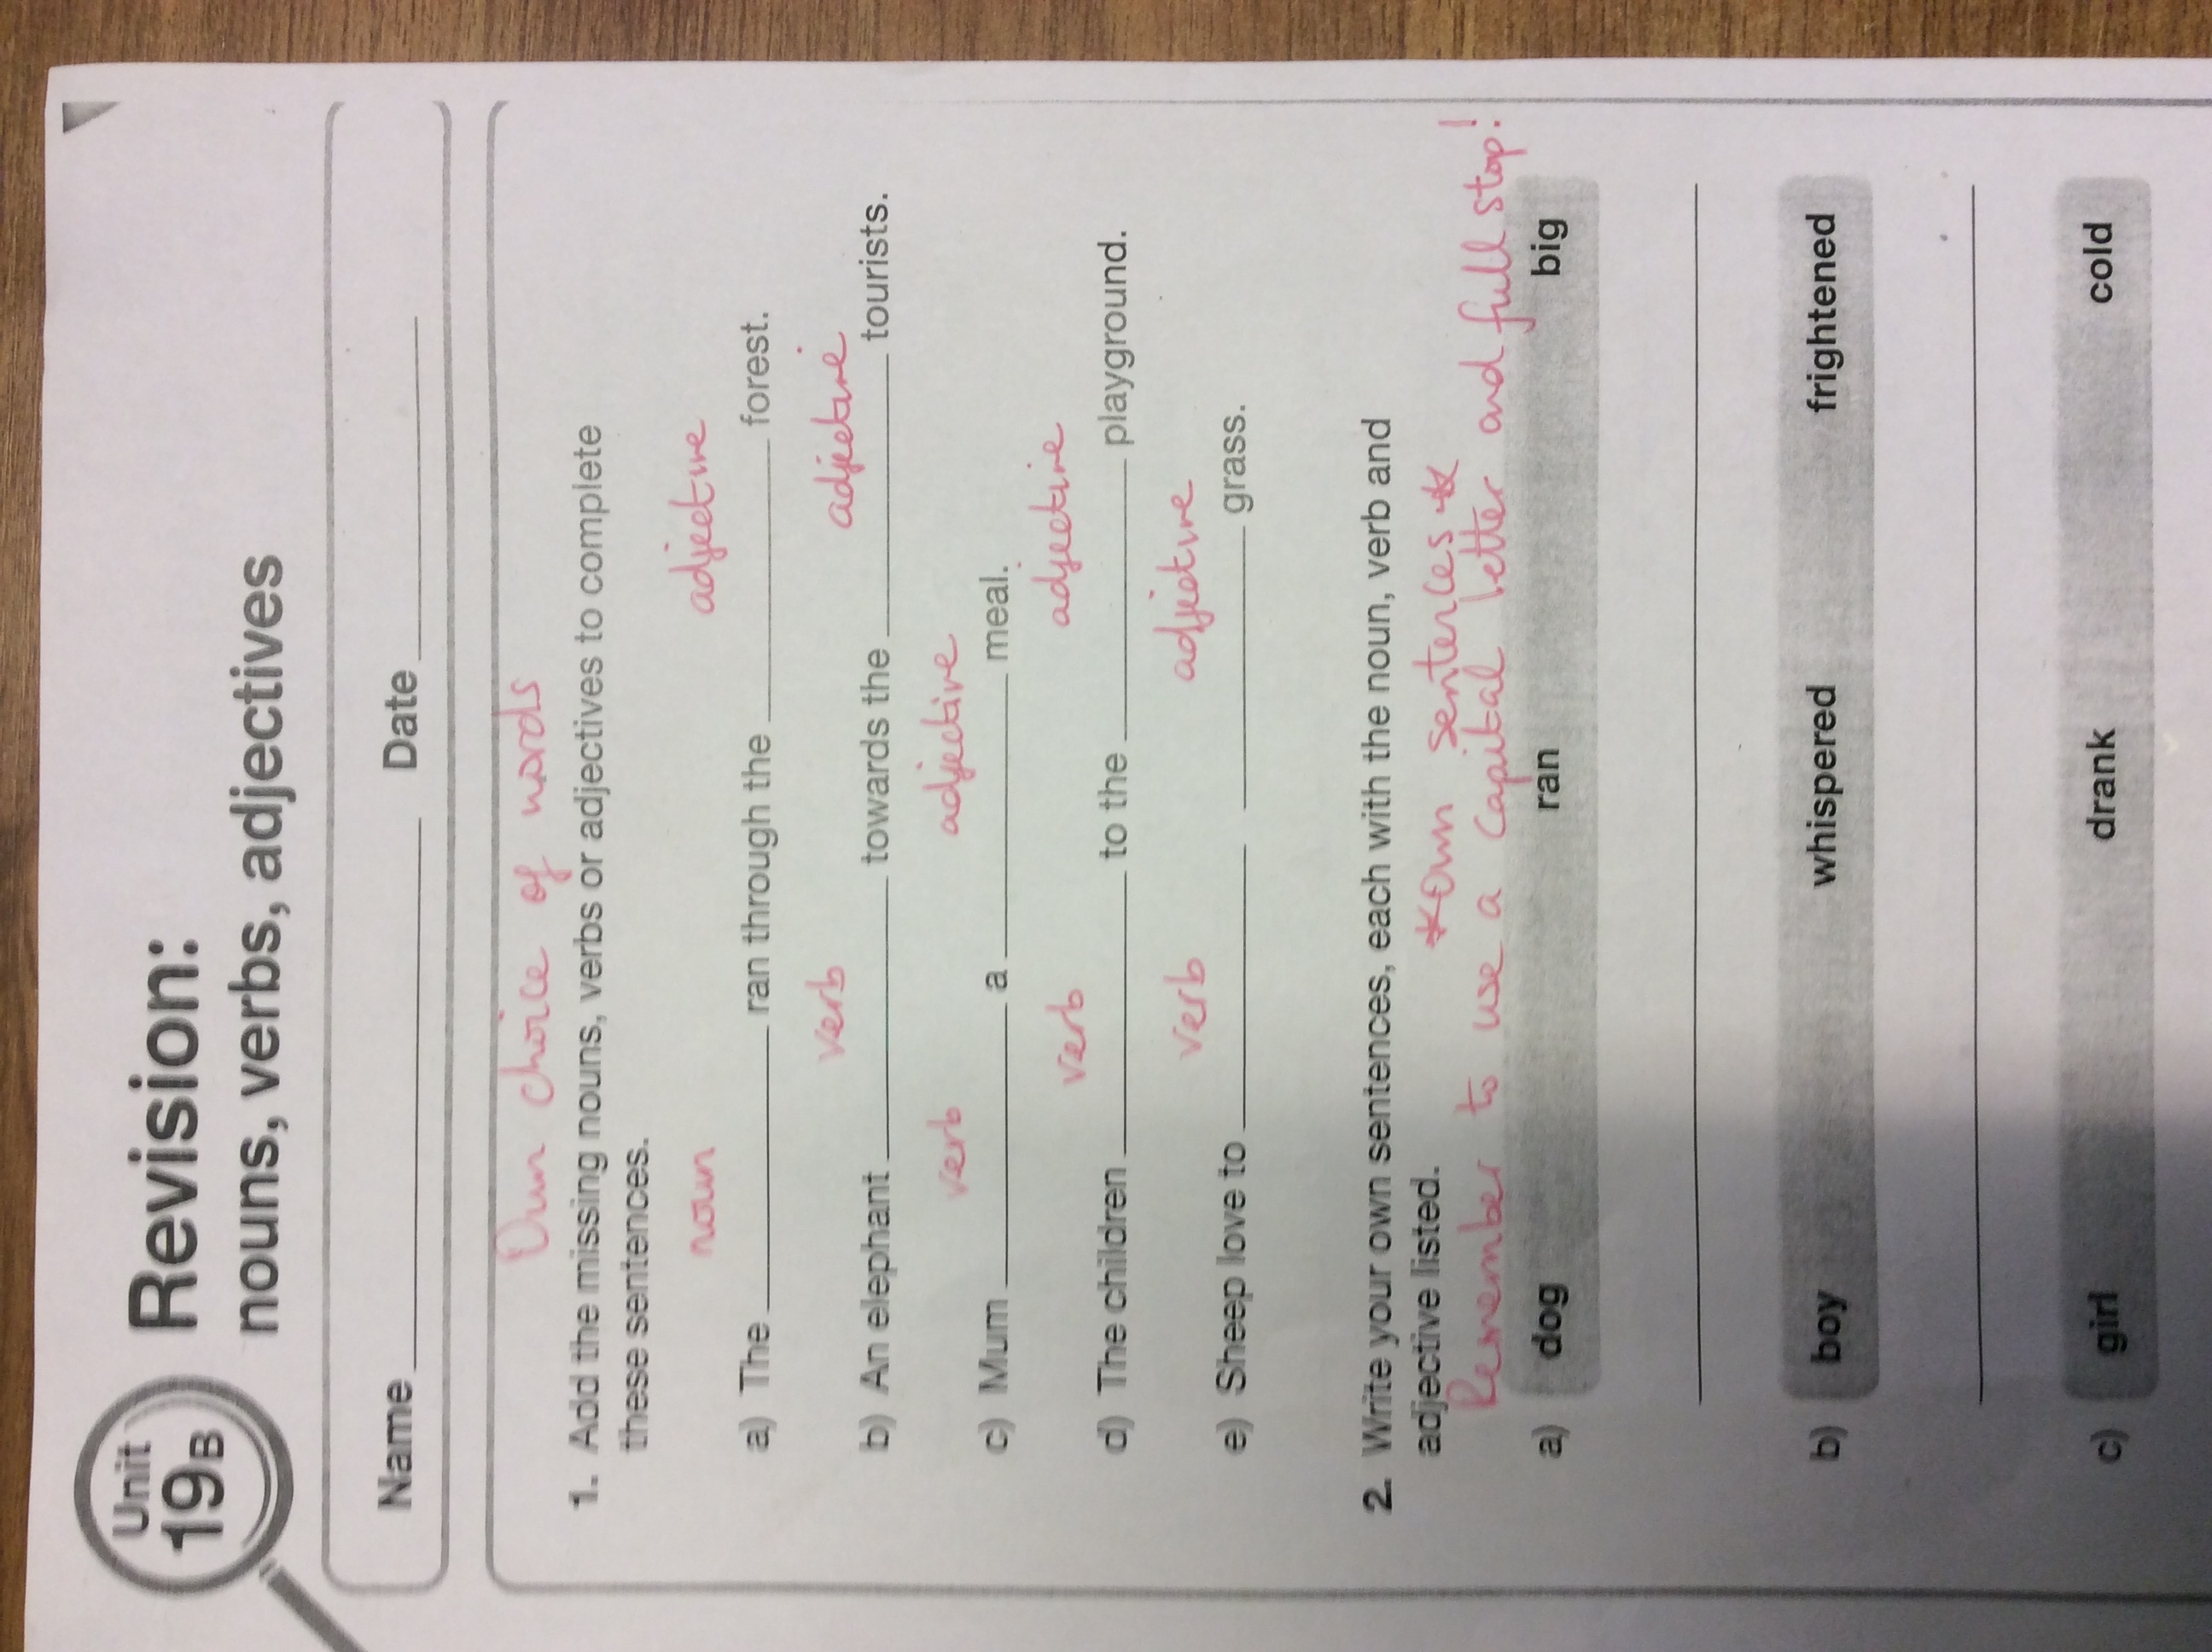 Unit
19B
Revision:
nouns, verbs, adjectives
Name ____________ Date ____________
Own choice of words
1. Add the missing nouns, verbs or adjectives to complete
these sentences.
noun adjective
a) The ____________ ran through the ____________ forest.
verb adjective
b) An elephant ____________ towards the ____________ tourists.
verb adjective
c) Mum ____________ a ____________ meal.
verb adjective
d) The children ____________ to the ____________ playground.
verb adjective
e) Sheep love to ____________ ____________ grass.
2. Write your own sentences, each with the noun, verb and
adjective listed. *Own sentences*
Remember to use a capital letter and full stop!
a) dog ran big
b) boy whispered frightened
c) girl drank cold